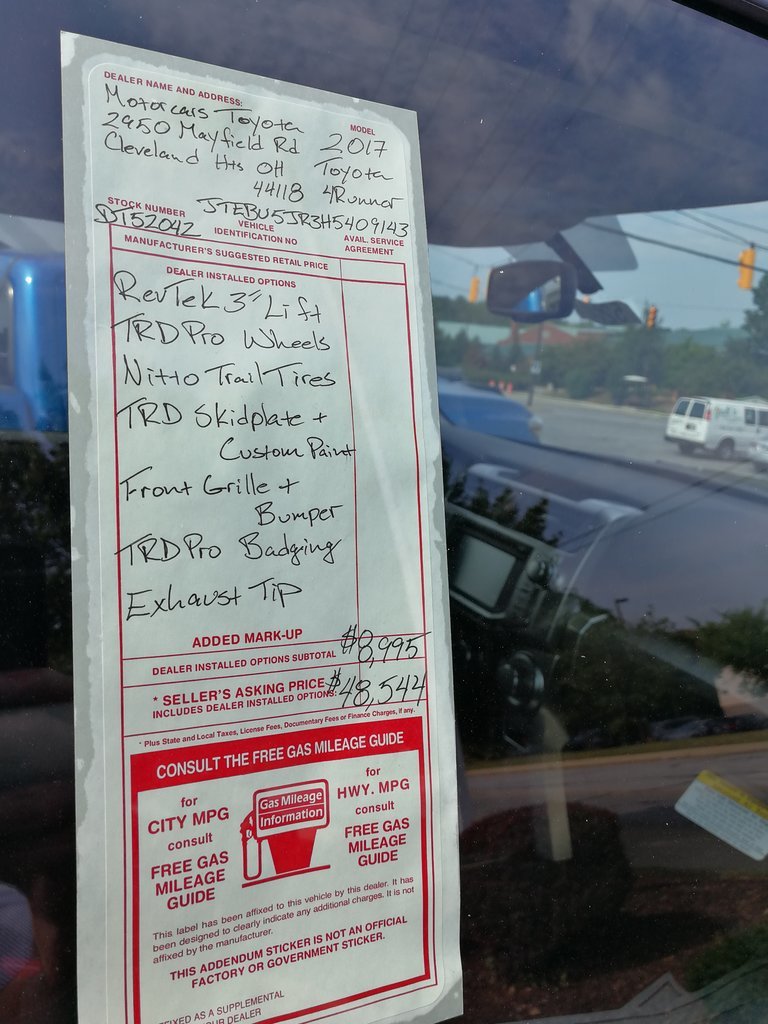 DEALER NAME AND ADDRESS:
Motorcars Toyota
2950 Mayfield Rd
Cleveland Hts OH
44118
MODEL
2017
Toyota
4Runner
STOCK NUMBER
DT52042
JTEBU5JR3H5409143
VEHICLE
IDENTIFICATION NO
AVAIL. SERVICE
AGREEMENT
MANUFACTURER'S SUGGESTED RETAIL PRICE
DEALER INSTALLED OPTIONS
RevTek 3" Lift
TRD Pro Wheels
Nitto Trail Tires
TRD Skidplate +
Custom Paint
Front Grille +
Bumper
TRD Pro Badging
Exhaust Tip
ADDED MARK-UP
DEALER INSTALLED OPTIONS SUBTOTAL $8,995
* SELLER'S ASKING PRICE $48,544
INCLUDES DEALER INSTALLED OPTIONS.
* Plus State and Local Taxes, License Fees, Documentary Fees or Finance Charges, if any.
CONSULT THE FREE GAS MILEAGE GUIDE
for
CITY MPG
consult
FREE GAS
MILEAGE
GUIDE
Gas Mileage
Information
for
HWY. MPG
consult
FREE GAS
MILEAGE
GUIDE
This label has been affixed to this vehicle by this dealer. It has
been designed to clearly indicate any additional charges. It is not
affixed by the manufacturer.
THIS ADDENDUM STICKER IS NOT AN OFFICIAL
FACTORY OR GOVERNMENT STICKER.
FIXED AS A SUPPLEMENTAL
DEALER